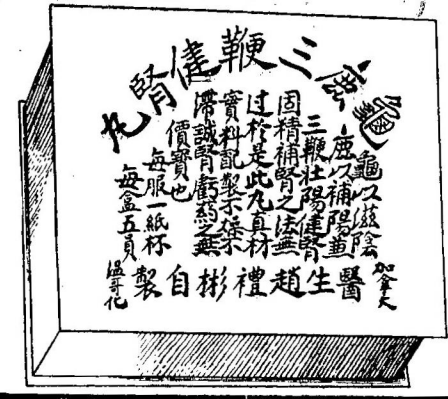 龜鹿三鞭健腎丸
龜以滋陰
鹿以補陽兼
三鞭壯陽健腎
固精補腎之法無
过於是此丸真材
實料配製不燥不
滯誠腎虧药之無
價寶也
每服一紙杯
每盒五員
加拿大
醫生趙禮彬自製
溫哥化